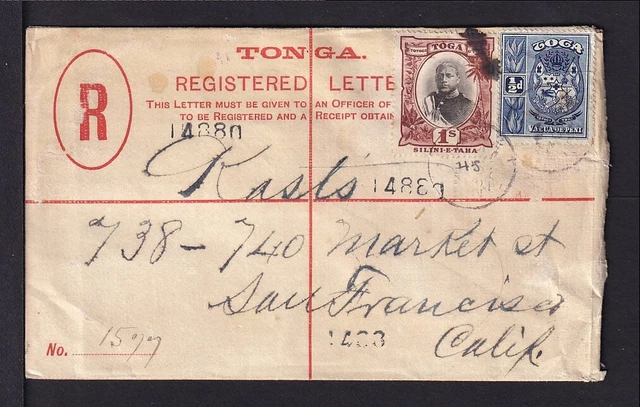 TONGA.
R
REGISTERED LETTE
THIS LETTER MUST BE GIVEN TO AN OFFICER OF
TO BE REGISTERED AND A RECEIPT OBTAIN
TOGA
1S
SILINI-E-TAHA
TOGA
½d
VAEUA OE PENI
14880
Kast's
14880
45
738-740 Market st
San Francisco
Calif.
No.